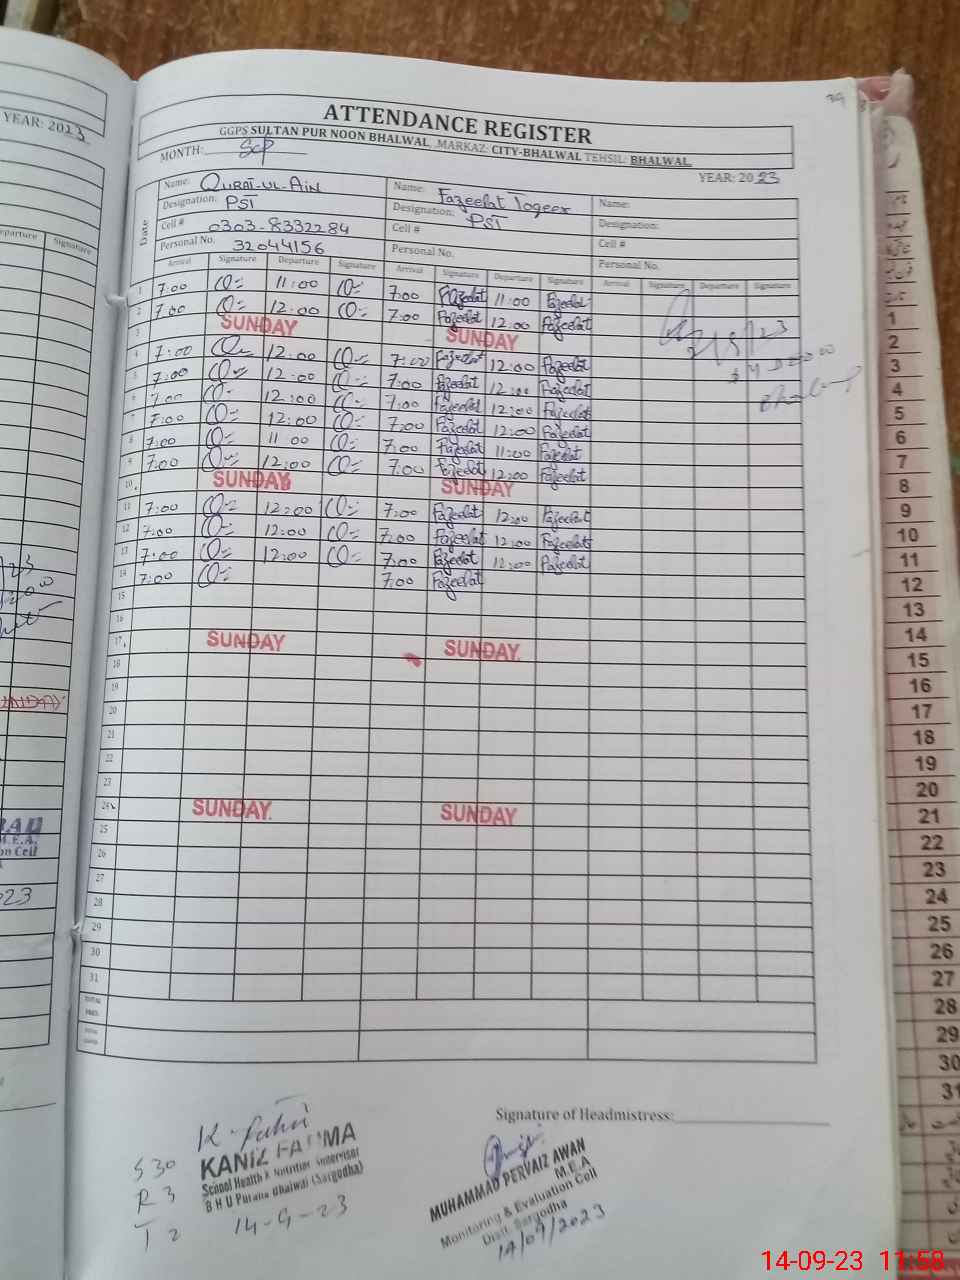 ATTENDANCE REGISTER
GGPS SULTAN PUR NOON BHALWAL, .MARKAZ: CITY-BHALWAL TEHSIL: BHALWAL
MONTH: Sep
YEAR: 2023
YEAR: 2023
Date
Name: QURAT-UL-AIN
Designation: PST
Cell # 0303-8332284
Personal No. 32044156
Name: Fazeelat Toqeer
Designation: PST
Cell #
Personal No.
Name:
Designation:
Cell #
Personal No.
Arrival Signature Departure Signature Arrival Signature Departure Signature Arrival Signature Departure Signature
1 7:00 11:00 7:00 Fazeelat 11:00 Fazeelat
2 7:00 12:00 7:00 Fazeelat 12:00 Fazeelat
3 SUNDAY SUNDAY
4 7:00 12:00 7:00 Fazeelat 12:00 Fazeelat
5 7:00 12:00 7:00 Fazeelat 12:00 Fazeelat
6 7:00 12:00 7:00 Fazeelat 12:00 Fazeelat
7 7:00 12:00 7:00 Fazeelat 12:00 Fazeelat
8 7:00 11:00 7:00 Fazeelat 11:00 Fazeelat
9 7:00 12:00 7:00 Fazeelat 12:00 Fazeelat
10 SUNDAY SUNDAY
11 7:00 12:00 7:00 Fazeelat 12:00 Fazeelat
12 7:00 12:00 7:00 Fazeelat 12:00 Fazeelat
13 7:00 12:00 7:00 Fazeelat 12:00 Fazeelat
14 7:00 7:00 Fazeelat
15
16
17 SUNDAY SUNDAY
18
19
20
21
22
23
24 SUNDAY SUNDAY
25
26
27
28
29
30
31
TOTAL
Signature of Headmistress:
S 30
R 3
T 2
KANIZ FATIMA
School Health & Nutrition Supervisor
B H U Purana Bhalwal (Sargodha)
14-9-23
MUHAMMAD PERVAIZ AWAN
M.E.A
Monitoring & Evaluation Cell
Distt. Sargodha
14/09/2023
Departure Signature
M.E.A.
1
2
3
4
5
6
7
8
9
10
11
12
13
14
15
16
17
18
19
20
21
22
23
24
25
26
27
28
29
30
31
14-09-23 11:58